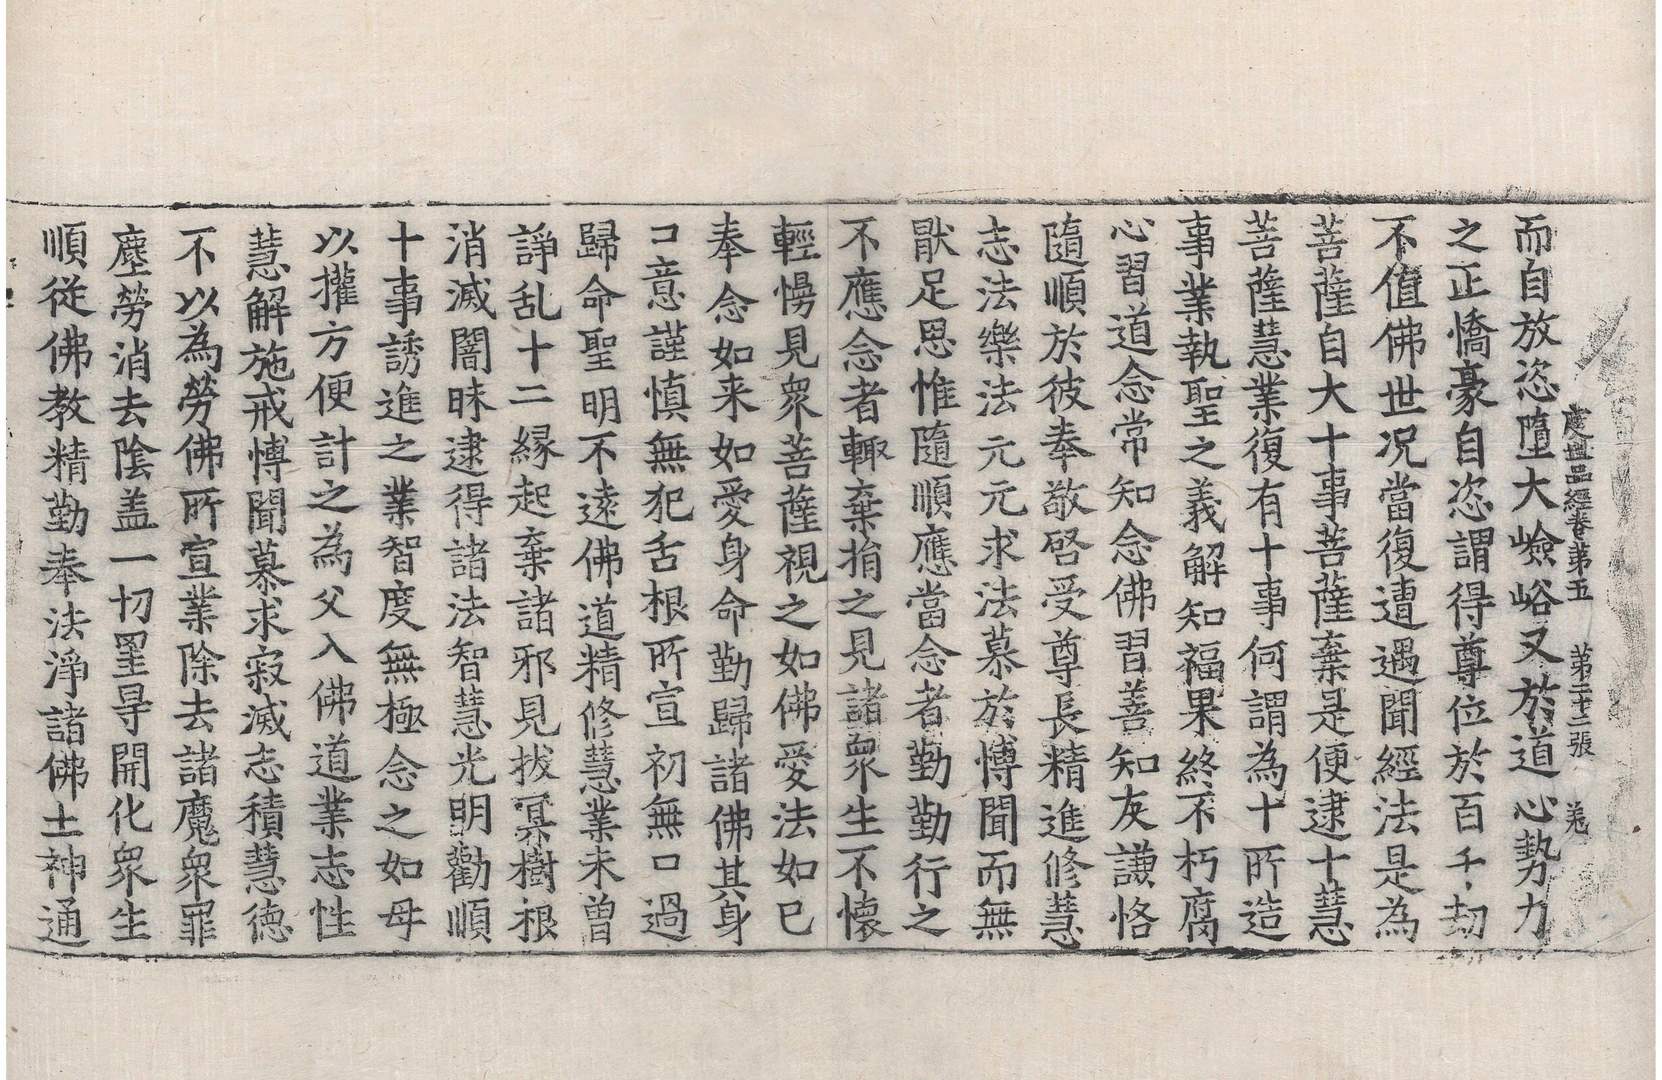 度世品經卷第五　第二十二張　羌
而自放恣墮大嶮峪又於道心勢力
之正憍豪自恣謂得尊位於百千劫
不值佛世况當復遭遇聞經法是為
菩薩自大十事菩薩棄是便逮十慧
菩薩慧業復有十事何謂為十所造
事業執聖之義解知福果終不朽腐
心習道念常知念佛習善知友謙恪
隨順於彼奉敬啓受尊長精進修慧
志法樂法元元求法慕於博聞而無
猒足思惟隨順應當念者勤勤行之
不應念者輙棄捐之見諸衆生不懷
輕慢見衆菩薩視之如佛愛法如己
奉念如来如愛身命勤歸諸佛其身
口意謹慎無犯舌根所宣初無口過
歸命聖明不遠佛道精修慧業未曾
諍乱十二緣起棄諸邪見拔冥樹根
消滅闇昧逮得諸法智慧光明勸順
十事誘進之業智度無極念之如母
以攉方便計之為父入佛道業志性
慧解施戒博聞慕求寂滅志積慧德
不以為勞佛所宣業除去諸魔衆罪
塵勞消去陰盖一切罣㝵開化衆生
順從佛教精勤奉法淨諸佛土神通